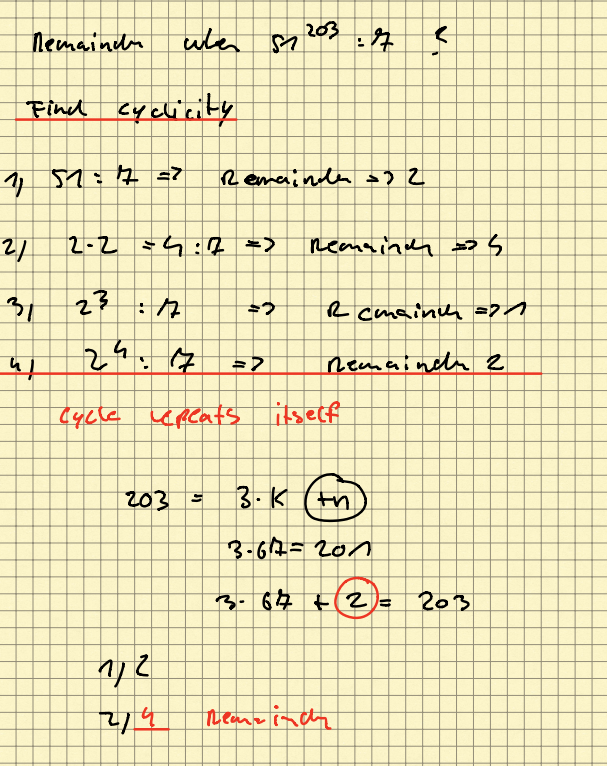 Remainder when 51^203 : 7 ?
Find cyclicity
1) 51 : 7 => Remainder => 2
2) 2·2 = 4 : 7 => Remainder => 4
3) 2^3 : 7 => Remainder => 1
4) 2^4 : 7 => Remainder 2
cycle repeats itself
203 = 3·K +n
3·67 = 201
3·67 + 2 = 203
1) 2
2) 4 Remainder